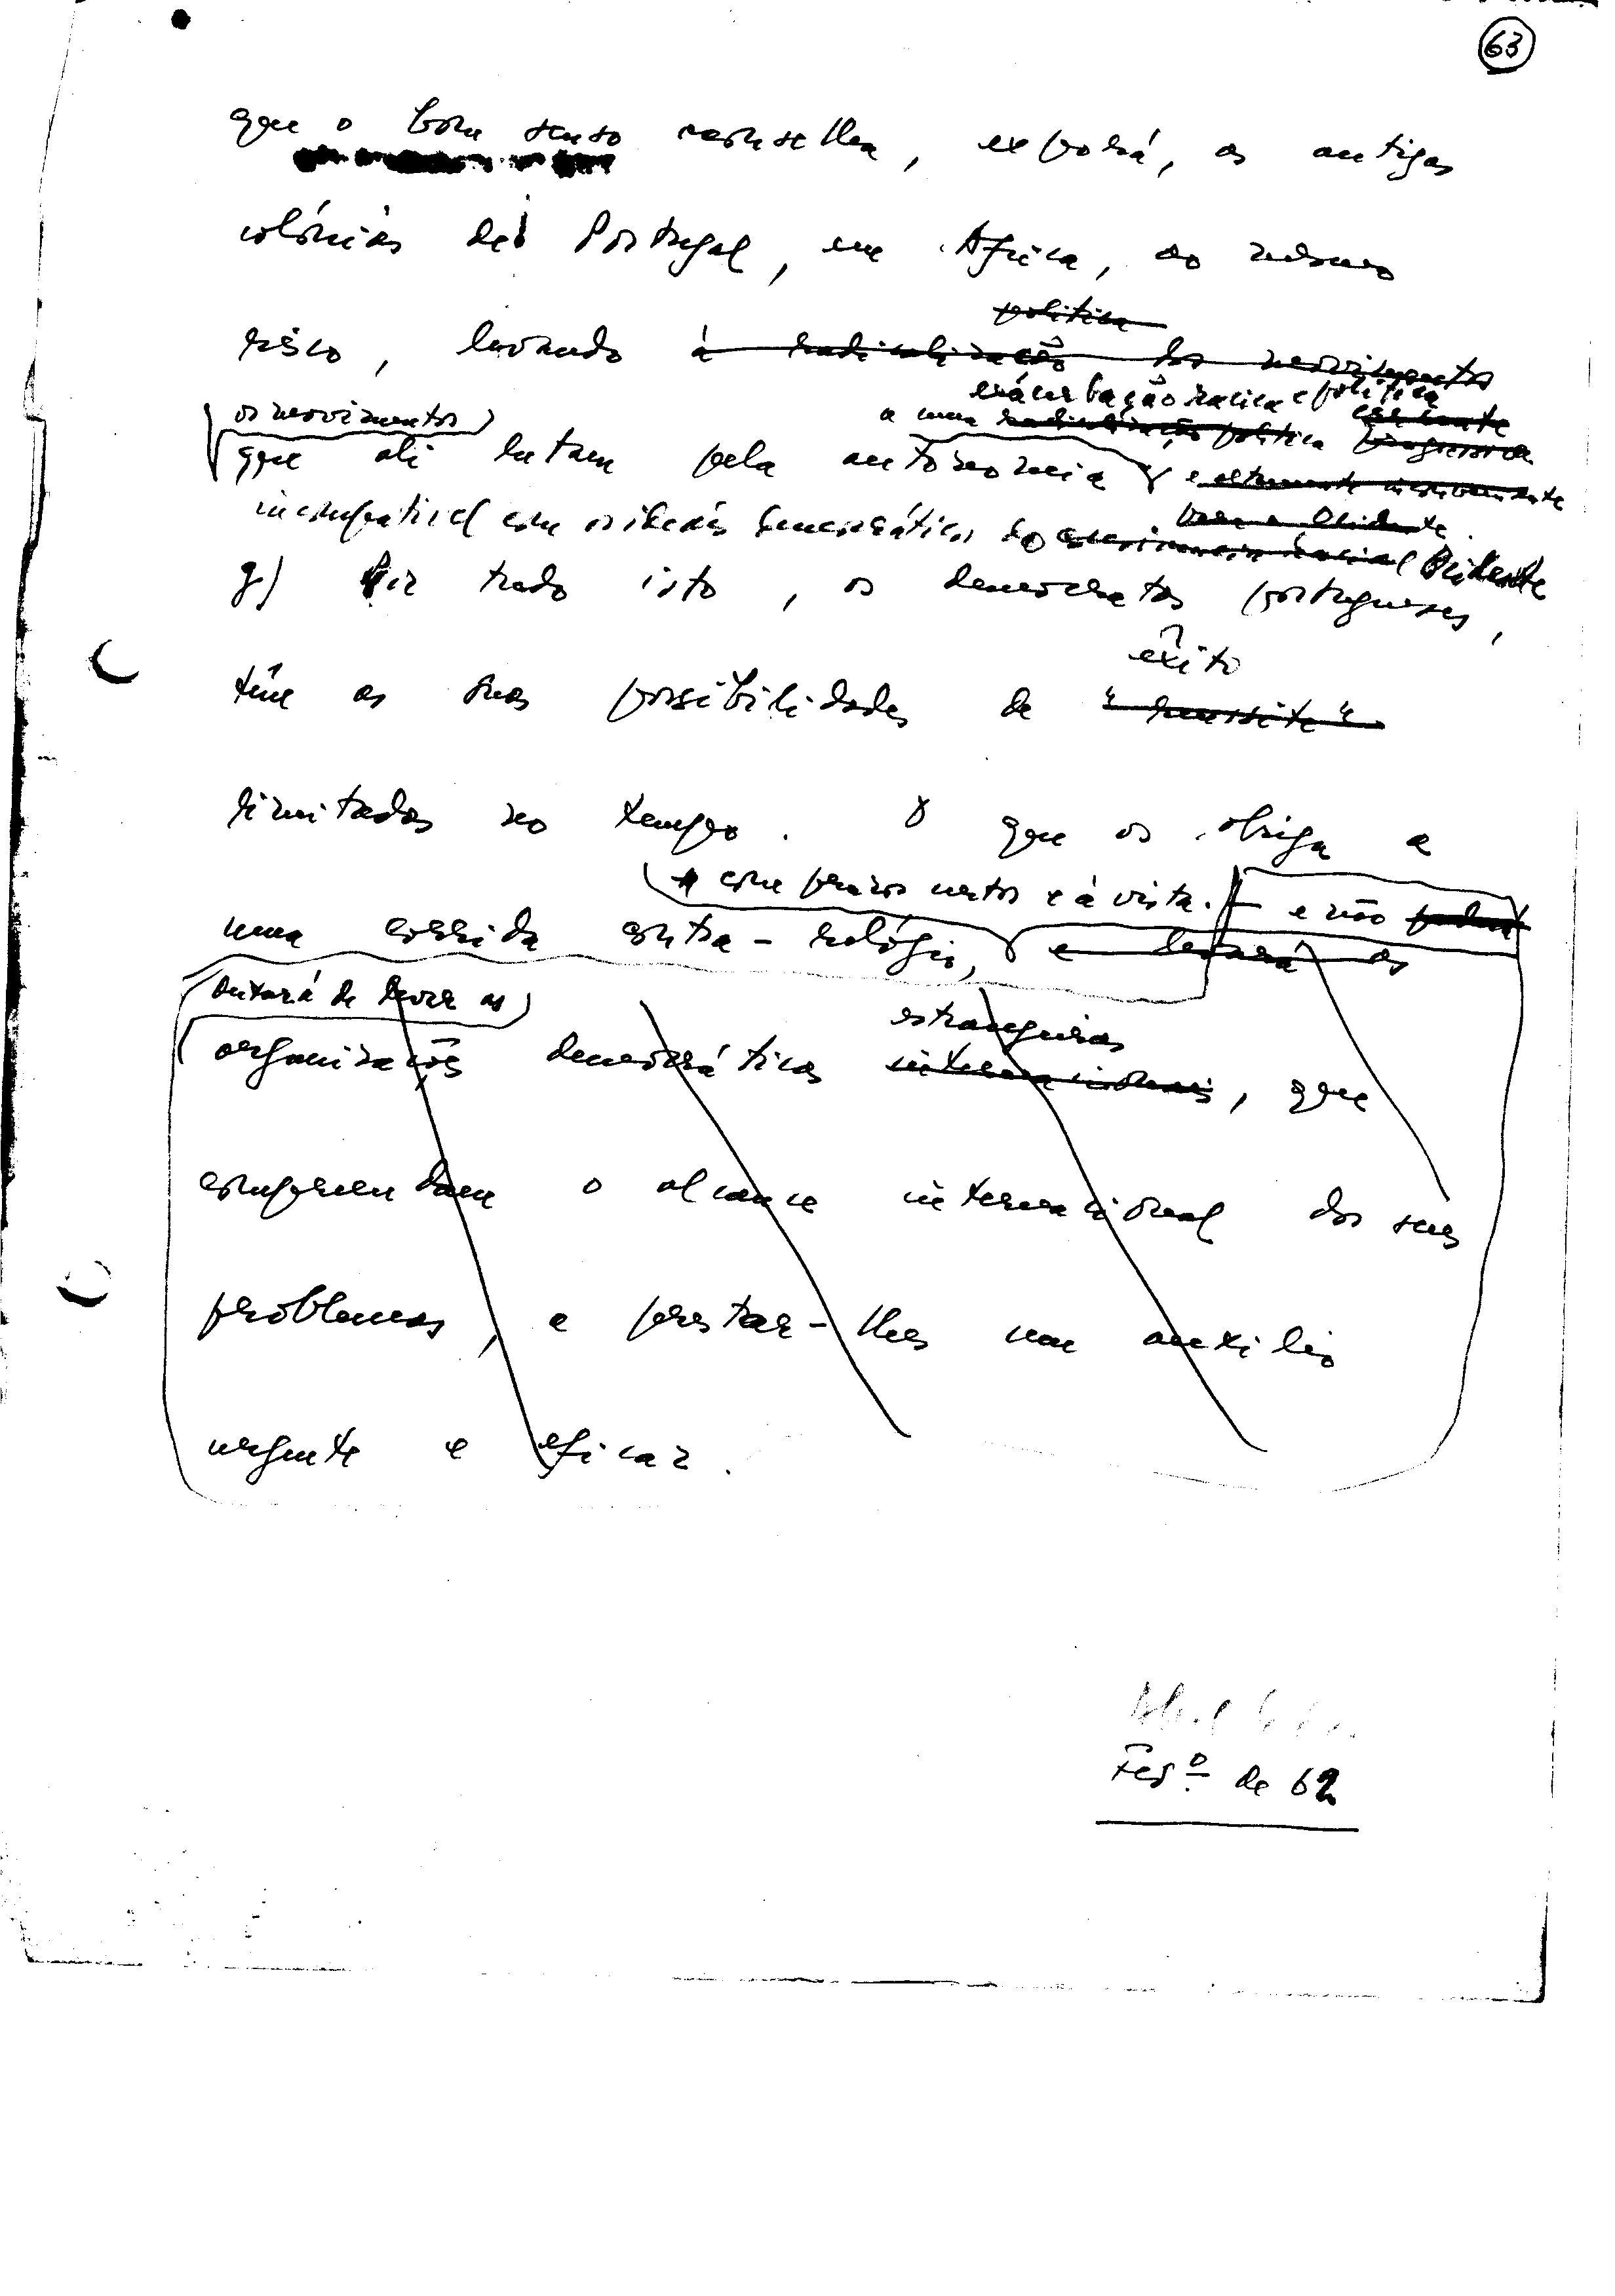 63
que o bom senso aconselha, exporá, as antigas
colónias de Portugal, em Africa, ao mesmo
política
risco, levando à radicalização dos movimentos
exacerbação racica e política
os movimentos
a uma radicalização política progressiva
que ali lutam pela autonomia e
para o Ocidente.
incompativel com os ideais democráticos do Ocidente
g) Por tudo isto, os democratas portugueses,
êxito
têm as suas possibilidades de
limitadas no tempo. O que os obriga a
com prazos curtos e à vista. e não
uma corrida contra-relógio, e levará as
deixará de levar as
estrangeiras
organizações democráticas internacionais, que
compreendam o alcance internacional dos seus
problemas, a prestar-lhes um auxilio
urgente e eficaz.
Fevº de 62